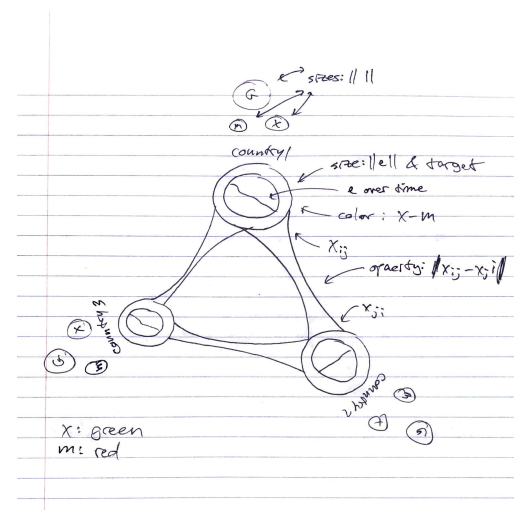 sizes: || ||
G
m X
country 1
size: ||e|| & target
e over time
color: X-m
Xij
opacity: |Xij-Xji|
Xji
country 3
X
G m
country 2
m
X
G
X: green
m: red